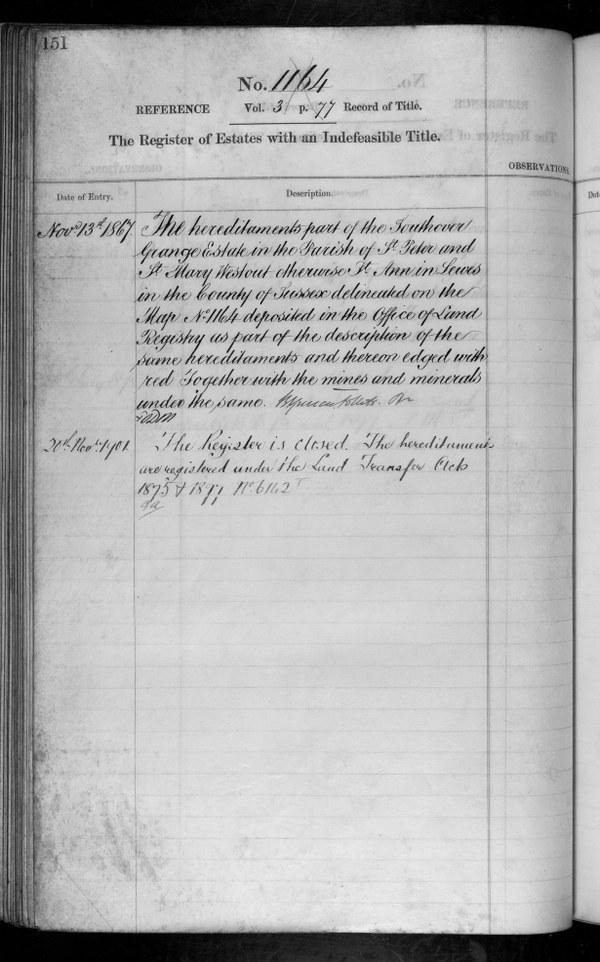 151
No. 1164
REFERENCE Vol. 3 p. 77 Record of Title.
The Register of Estates with an Indefeasible Title.
OBSERVATIONS.
Date of Entry.
Description.
Novr 13th 1867
The hereditaments part of the Southover
Grange Estate in the Parish of St Peter and
St Mary Westout otherwise St Ann in Lewes
in the County of Sussex delineated on the
Map No 1164 deposited in the Office of Land
Registry as part of the description of the
same hereditaments and thereon edged with
red Together with the mines and minerals
under the same.
20th Novr 1901
The Register is closed. The hereditaments
are registered under the Land Transfer Acts
1875 & 1897 No 6142